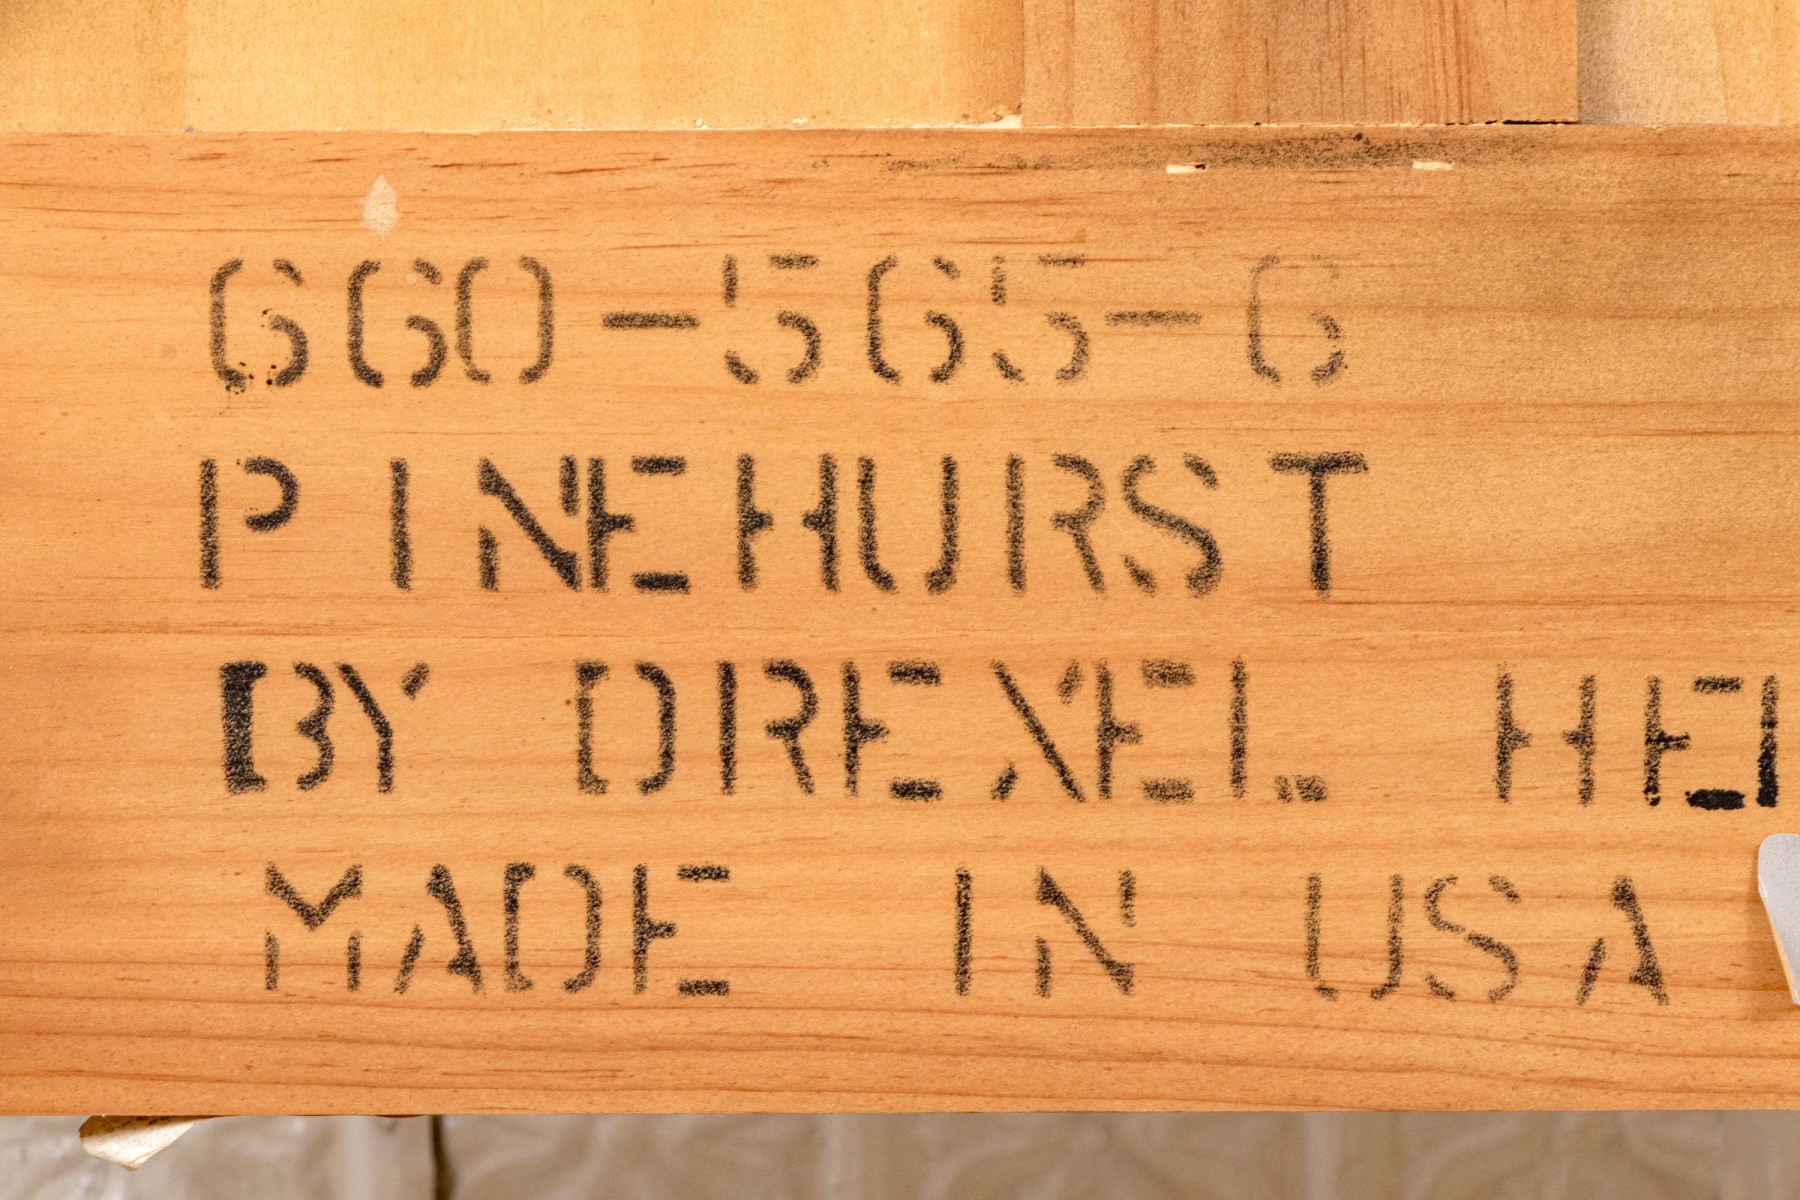 660-565-6
PINEHURST
BY DREXEL HEI
MADE IN USA